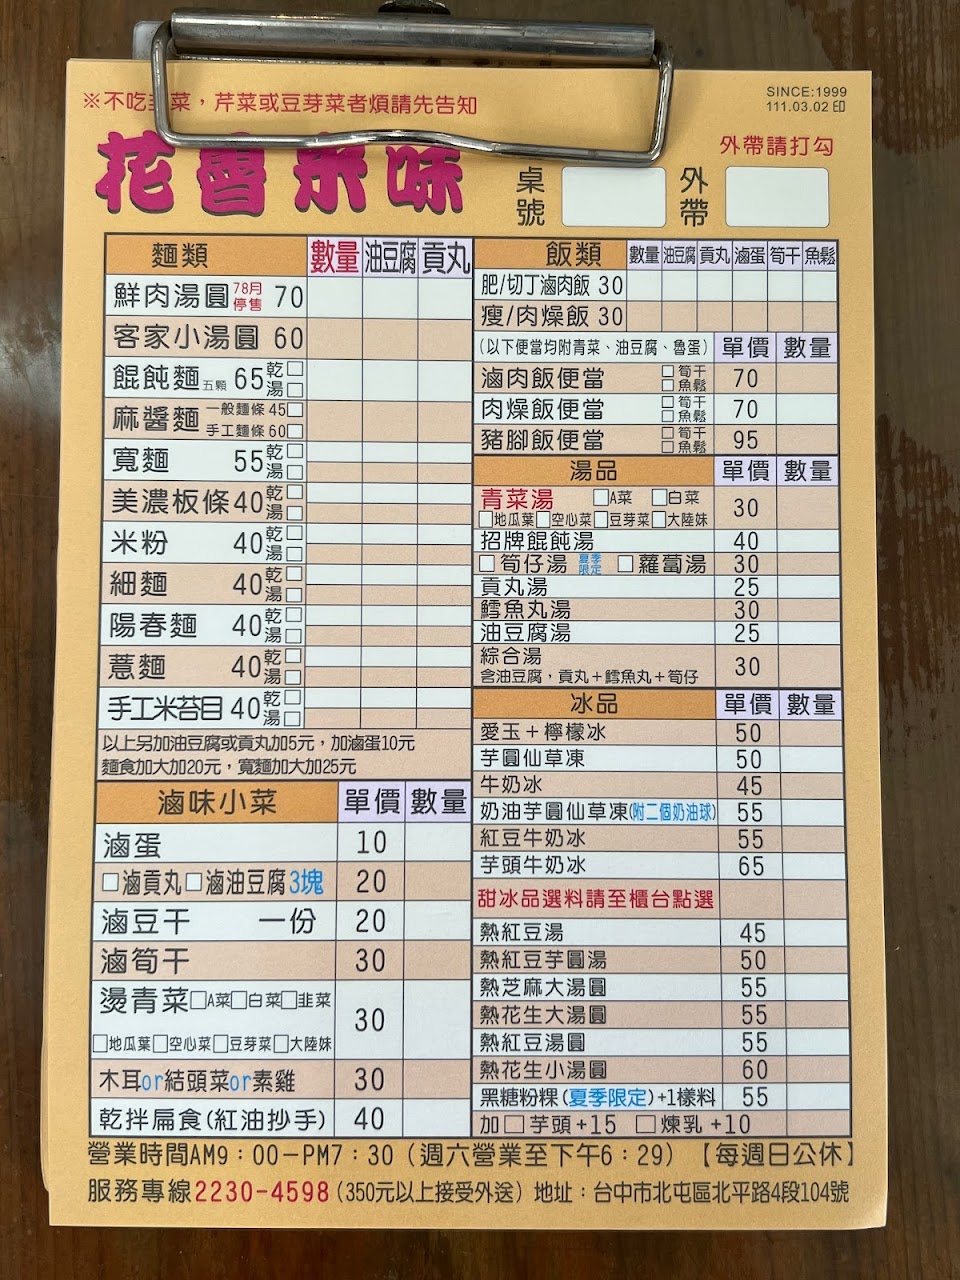 SINCE:1999
111.03.02 印
※不吃韭菜，芹菜或豆芽菜者煩請先告知
外帶請打勾
花魯米味
桌號
外帶
麵類 數量 油豆腐 貢丸
鮮肉湯圓 78月停售 70
客家小湯圓 60
餛飩麵 五顆 65 乾□ 湯□
麻醬麵 一般麵條 45□ 手工麵條 60□
寬麵 55 乾□ 湯□
美濃板條 40 乾□ 湯□
米粉 40 乾□ 湯□
細麵 40 乾□ 湯□
陽春麵 40 乾□ 湯□
薏麵 40 乾□ 湯□
手工米苔目 40 乾□ 湯□
以上另加油豆腐或貢丸加5元，加滷蛋10元
麵食加大加20元，寬麵加大加25元
滷味小菜 單價 數量
滷蛋 10
□滷貢丸□滷油豆腐3塊 20
滷豆干 一份 20
滷筍干 30
燙青菜□A菜□白菜□韭菜 30
□地瓜葉□空心菜□豆芽菜□大陸妹
木耳or結頭菜or素雞 30
乾拌扁食(紅油抄手) 40
飯類 數量 油豆腐 貢丸 滷蛋 筍干 魚鬆
肥/切丁滷肉飯 30
瘦/肉燥飯 30
(以下便當均附青菜、油豆腐、魯蛋) 單價 數量
滷肉飯便當 □筍干 □魚鬆 70
肉燥飯便當 □筍干 □魚鬆 70
豬腳飯便當 □筍干 □魚鬆 95
湯品 單價 數量
青菜湯 □A菜 □白菜 30
□地瓜葉□空心菜□豆芽菜□大陸妹
招牌餛飩湯 40
□筍仔湯 夏季限定 □蘿蔔湯 30
貢丸湯 25
鱈魚丸湯 30
油豆腐湯 25
綜合湯 30
含油豆腐，貢丸＋鱈魚丸＋筍仔
冰品 單價 數量
愛玉＋檸檬冰 50
芋圓仙草凍 50
牛奶冰 45
奶油芋圓仙草凍(附二個奶油球) 55
紅豆牛奶冰 55
芋頭牛奶冰 65
甜冰品選料請至櫃台點選
熱紅豆湯 45
熱紅豆芋圓湯 50
熱芝麻大湯圓 55
熱花生大湯圓 55
熱紅豆湯圓 55
熱花生小湯圓 60
黑糖粉粿(夏季限定)+1樣料 55
加□芋頭+15 □煉乳+10
營業時間AM9：00－PM7：30（週六營業至下午6：29）【每週日公休】
服務專線2230-4598(350元以上接受外送) 地址：台中市北屯區北平路4段104號